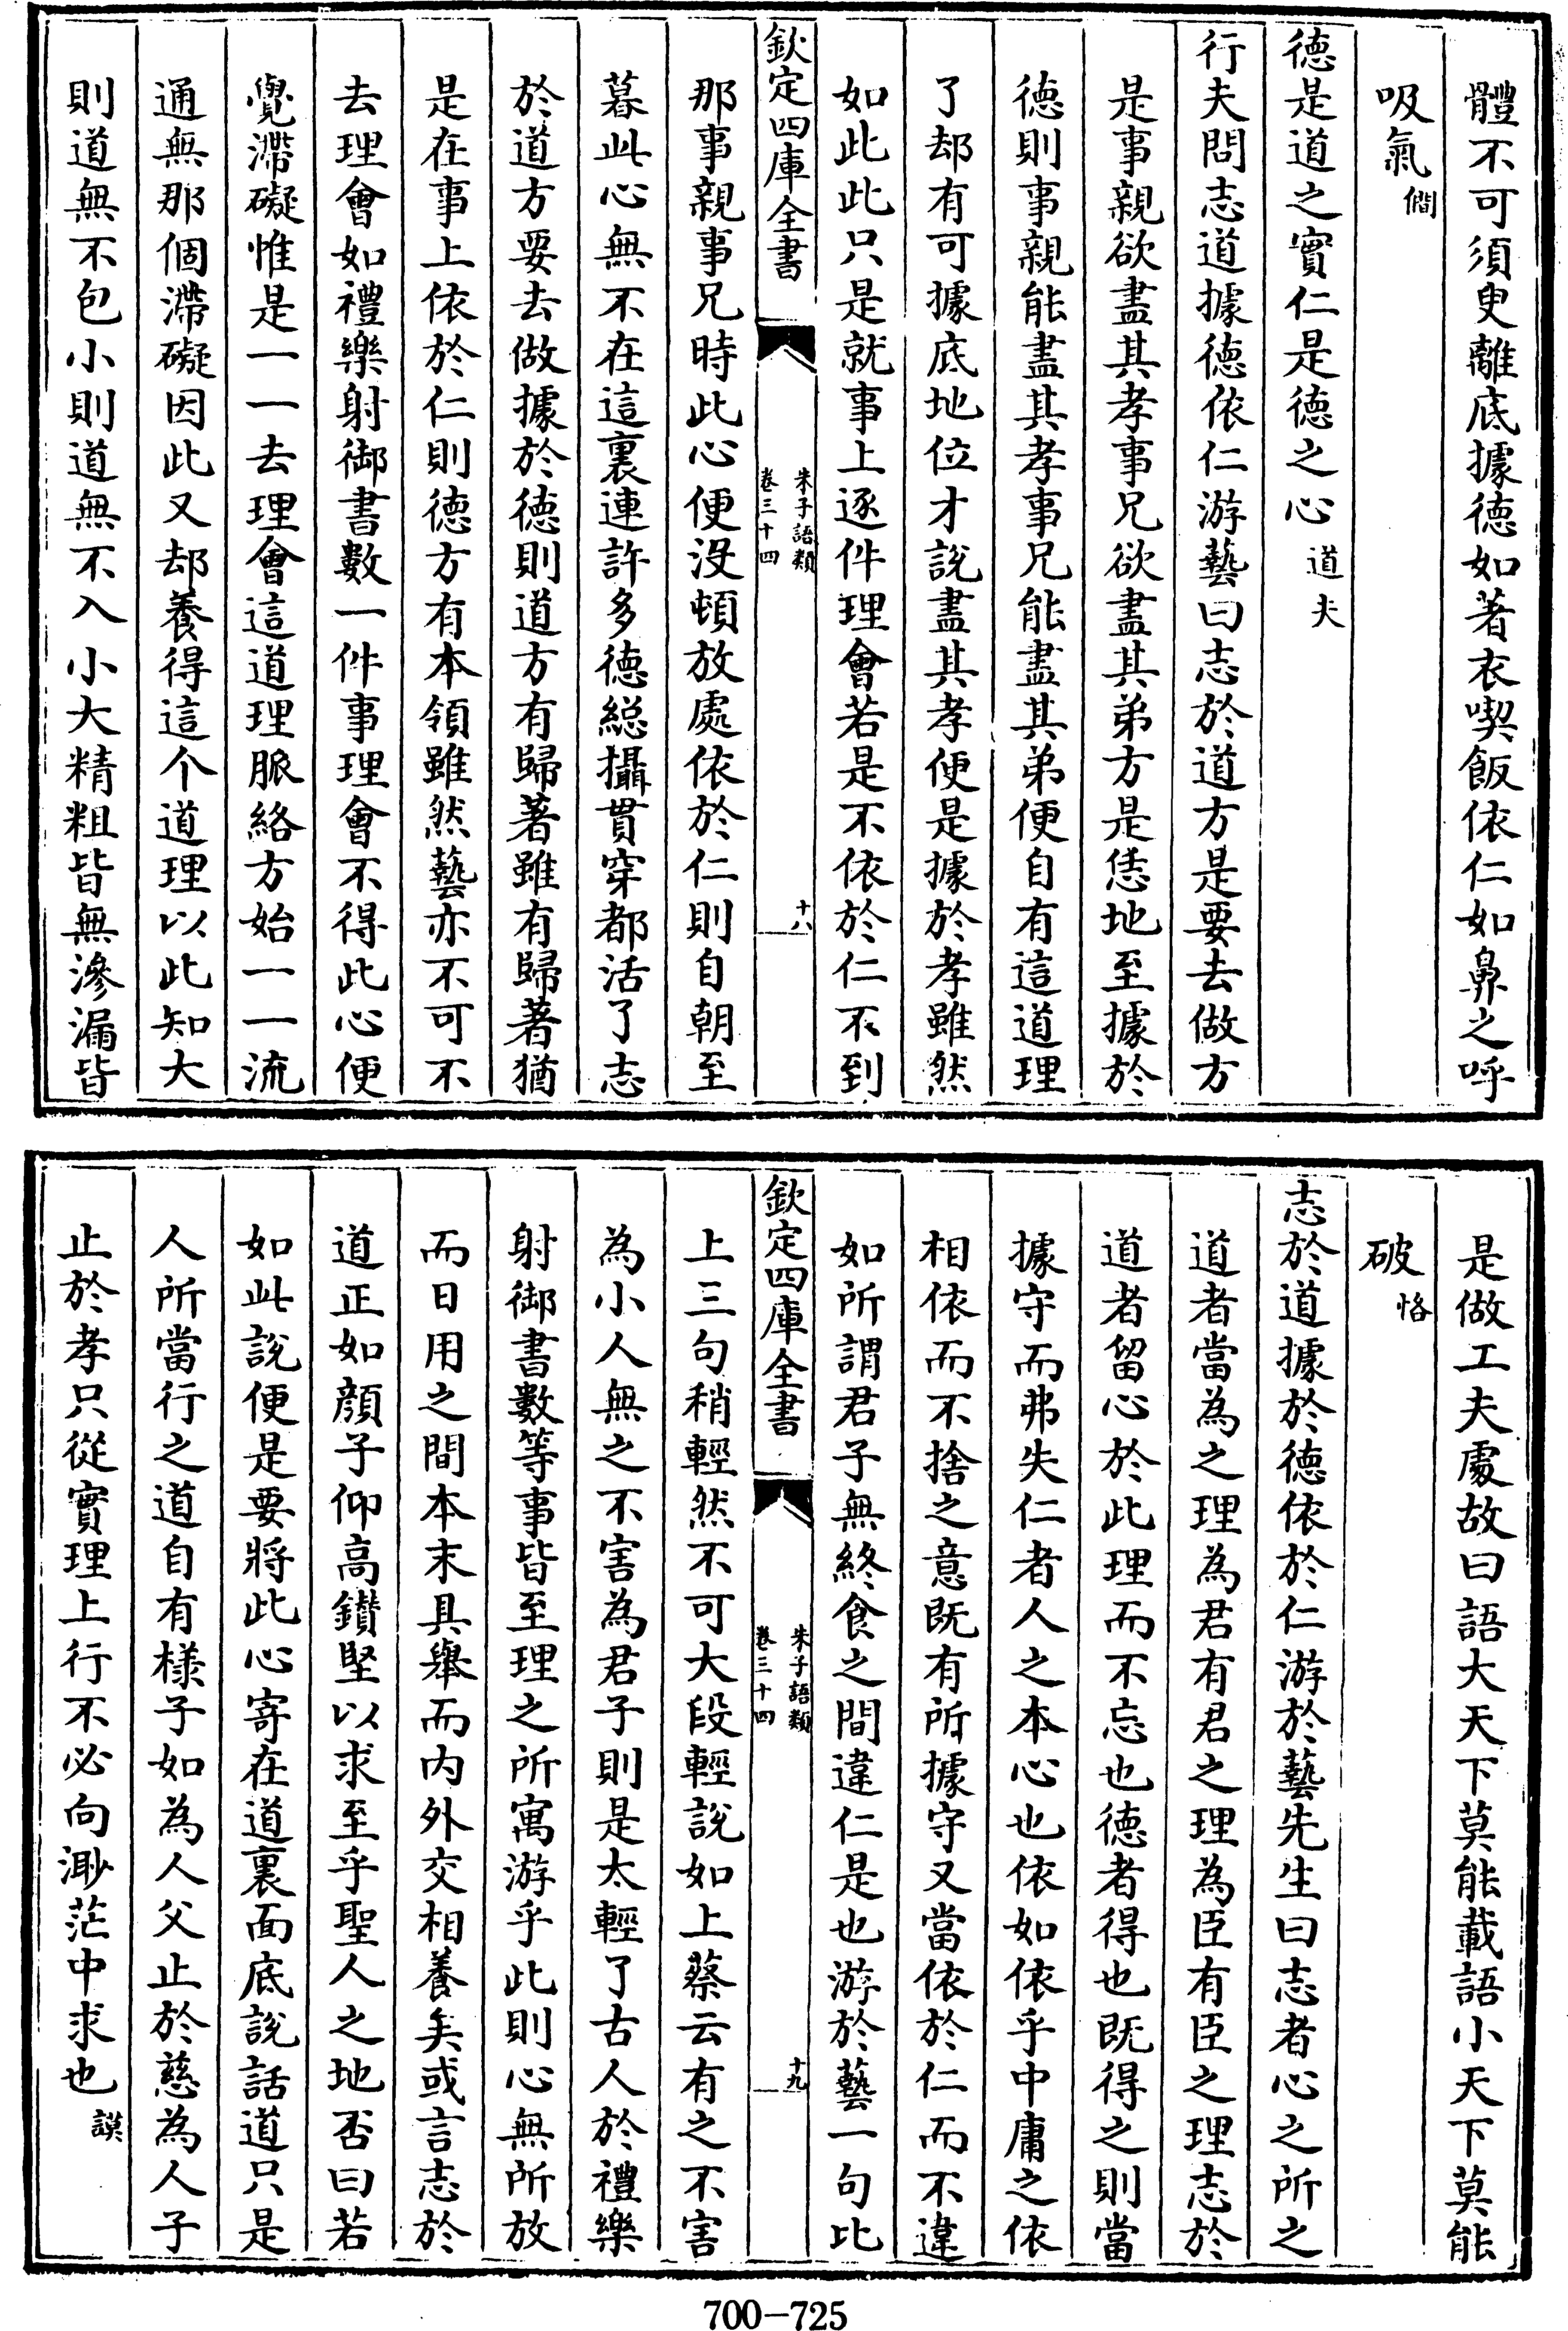 體不可須臾離底據德如著衣喫飯依仁如鼻之呼
吸氣僴
德是道之實仁是德之心道夫
行夫問志道據德依仁游藝曰志於道方是要去做方
是事親欲盡其孝事兄欲盡其弟方是恁地至據於
德則事親能盡其孝事兄能盡其弟便自有這道理
了却有可據底地位才說盡其孝便是據於孝雖然
如此此只是就事上逐件理會若是不依於仁不到
欽定四庫全書
朱子語類
卷三十四
十八
那事親事兄時此心便沒頓放處依於仁則自朝至
暮此心無不在這裏連許多德総攝貫穿都活了志
於道方要去做據於德則道方有歸著雖有歸著猶
是在事上依於仁則德方有本領雖然藝亦不可不
去理會如禮樂射御書數一件事理會不得此心便
覺滯礙惟是一一去理會這道理脈絡方始一一流
通無那個滯礙因此又却養得這个道理以此知大
則道無不包小則道無不入小大精粗皆無滲漏皆
是做工夫處故曰語大天下莫能載語小天下莫能
破恪
志於道據於德依於仁游於藝先生曰志者心之所之
道者當為之理為君有君之理為臣有臣之理志於
道者留心於此理而不忘也德者得也既得之則當
據守而弗失仁者人之本心也依如依乎中庸之依
相依而不捨之意既有所據守又當依於仁而不違
如所謂君子無終食之間違仁是也游於藝一句比
欽定四庫全書
朱子語類
卷三十四
十九
上三句稍輕然不可大段輕說如上蔡云有之不害
為小人無之不害為君子則是太輕了古人於禮樂
射御書數等事皆至理之所寓游乎此則心無所放
而日用之間本末具舉而內外交相養矣或言志於
道正如顏子仰高鑽堅以求至乎聖人之地否曰若
如此說便是要將此心寄在道裏面底說話道只是
人所當行之道自有樣子如為人父止於慈為人子
止於孝只從實理上行不必向渺茫中求也謨
700-725